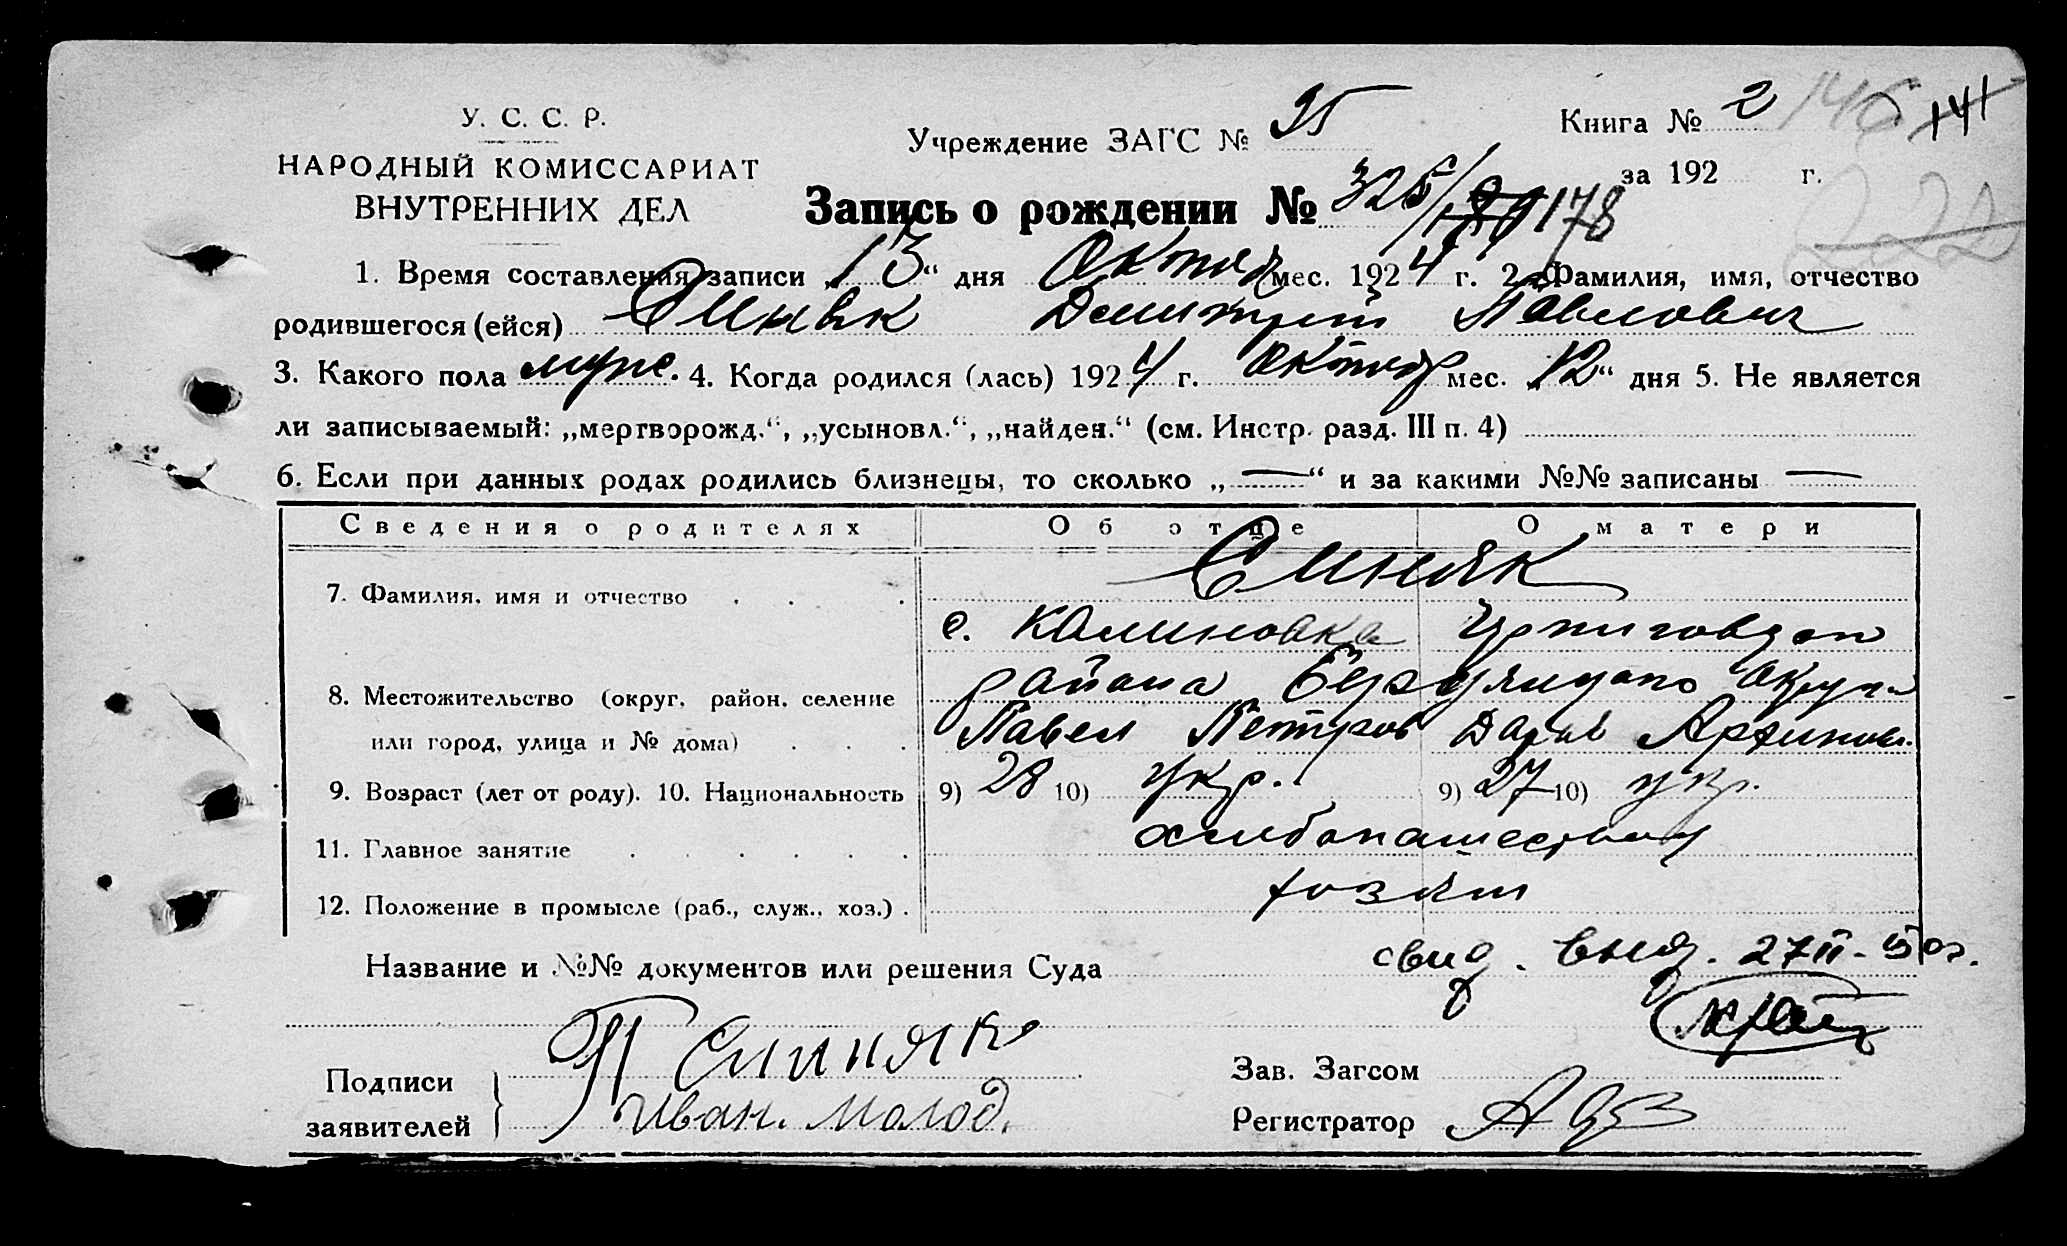 У. С. С. Р.
НАРОДНЫЙ КОМИССАРИАТ
ВНУТРЕННИХ ДЕЛ
Учреждение ЗАГС № 35
Книга № 2 146 141
за 192 г.
222
Запись о рождении № 325/ 178
1. Время составления записи „13“ дня Октяб мес. 1924 г. 2. Фамилия, имя, отчество
родившегося (ейся) Синяк Дмитрий Павлович
3. Какого пола муж. 4. Когда родился (лась) 1924 г. Октябр мес. „12“ дня 5. Не является
ли записываемый: „мертворожд.“, „усыновл.“, „найден.“ (см. Инстр. разд. III п. 4)
6. Если при данных родах родились близнецы, то сколько „—“ и за какими №№ записаны —
Сведения о родителях Об отце О матери
7. Фамилия, имя и отчество Синяк
с. Калиновка
8. Местожительство (округ, район, селение района
или город, улица и № дома) Павел Петров Дарья
9. Возраст (лет от роду). 10. Национальность 9) 28 10) укр. 9) 27 10) укр.
11. Главное занятие
12. Положение в промысле (раб., служ., хоз.)
Название и №№ документов или решения Суда свид. выд. 27 II - 50г.
Подписи заявителей П Синяк
Иван. Молод.
Зав. Загсом
Регистратор